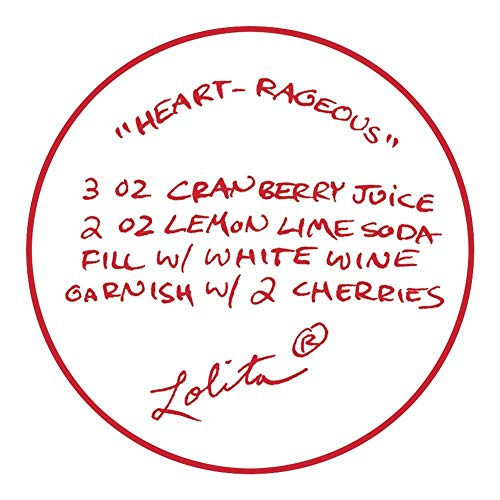 "HEART-RAGEOUS"
3 OZ CRANBERRY JUICE
2 OZ LEMON LIME SODA
FILL W/ WHITE WINE
GARNISH W/ 2 CHERRIES
Lolita ®